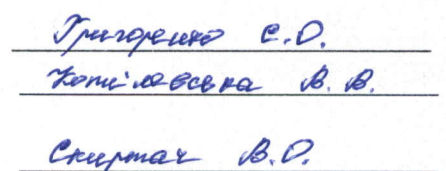 Григоренко С.О.
Копілевська В. В.
Скирнач В.О.